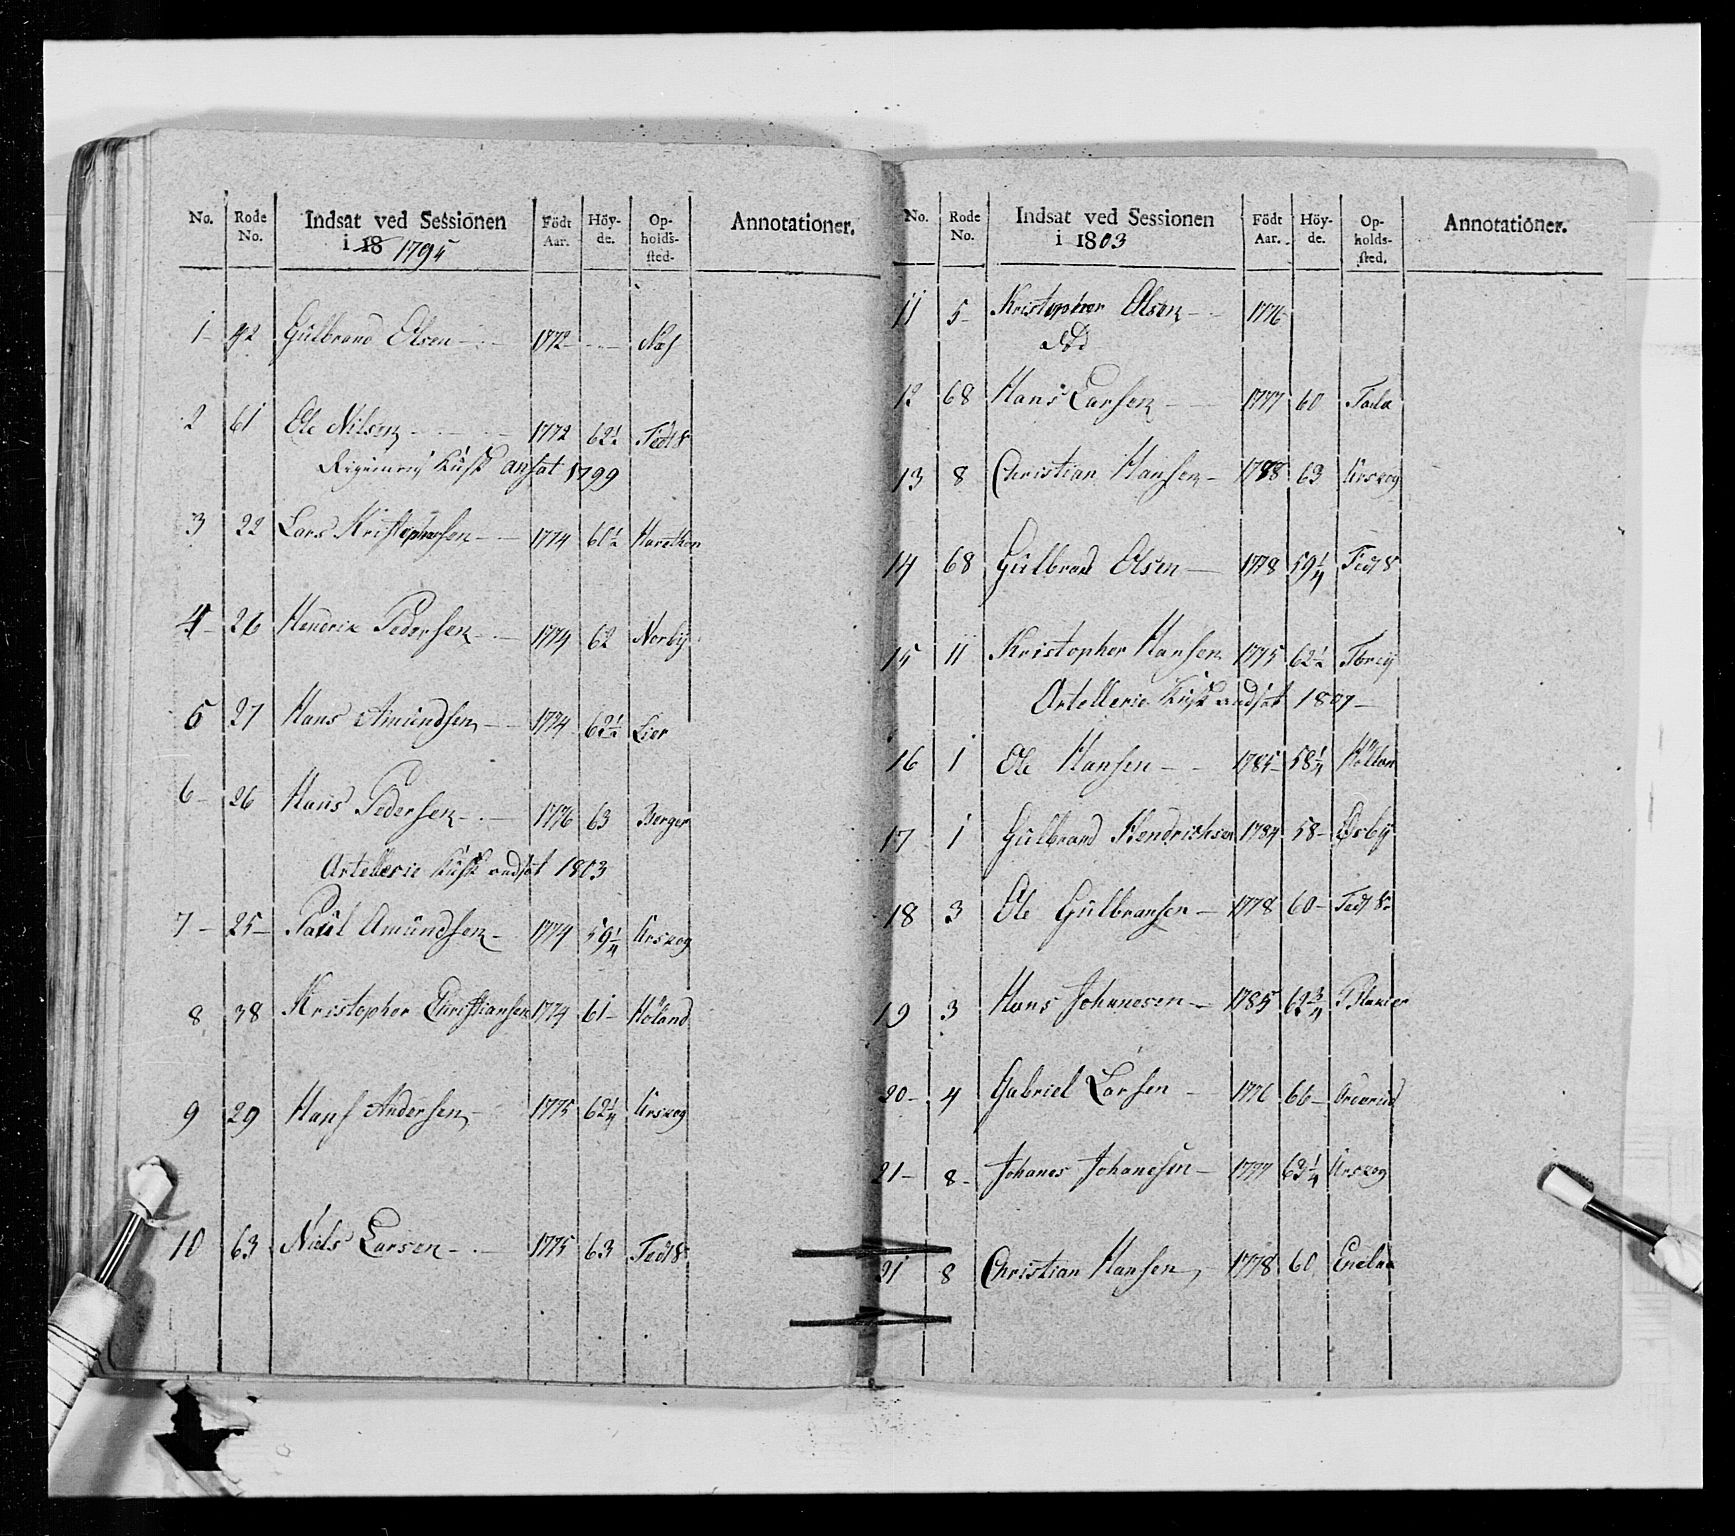 No. Rode No. Indsat ved Sessionen i 18 1795 Födt Aar. Höy-de. Op-holds-sted. Annotationer.
1 - 42 Gulbrand Olsen - 1772 - Næs
2 61 Ole Nilsen - 1772 62½ Fedt S
Kusk ansat 1799
3 22 Lars Kristophersen - 1774 60½
4 - 26 Henerik Pedersen - 1774 62 Norby
5 27 Hans Amundsen - 1774 62½ Lier
6 - 26 Hans Pedersen - 1776 63 Berger
Artellerie Kusk andsat 1803
7 - 25 - Paul Amundsen - 1774 59¼ Urskog
8 38 Kristopher Christiansen 1774 61 - Höland
9 29 Hans Andersen - 1775 62¼ Urskog
10 63 Niels Larsen - 1775 63 Fedt S
No. Rode No. Indsat ved Sessionen i 1803 Födt Aar. Höy-de. Op-holds-sted. Annotationer.
11 5 - Kristopher Olsen - 1776
Död
12 68 Hans Larsen - 1777 60
13 8 Christian Hansen - 1788 63 Urskog
14 68 Gulbrand Olsen - 1778 59¼ Fedt S
15 11 Kristopher Hansen 1775 62½
Artellerie Kusk andsat 1807 -
16 1 Ole Hansen - 1785 58¼
17 - 1 Gulbrand Hendrichsen 1784 58 -
18 3 Ole Gulbransen - 1778 60 - Fedt S
19 3 Hans Johanesen - 1785 62¾
20 - 4 Gabriel Larsen - 1776 66 -
21 - 8 - Johanes Johanesen - 1777 63¼ Urskog
21 8 Christian Hansen - 1778 60